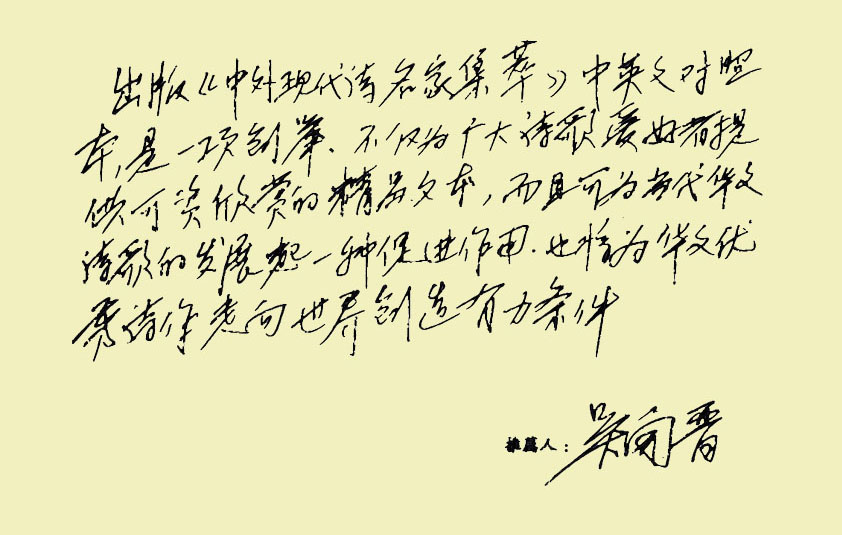 出版《中外现代诗名家集萃》中英文对照
本,是一项创举.不仅为广大诗歌爱好者提
供可资欣赏的精品文本,而且可为当代华文
诗歌的发展起一种促进作用.也将为华文优
秀诗作走向世界创造有力条件
推荐人:吴开晋